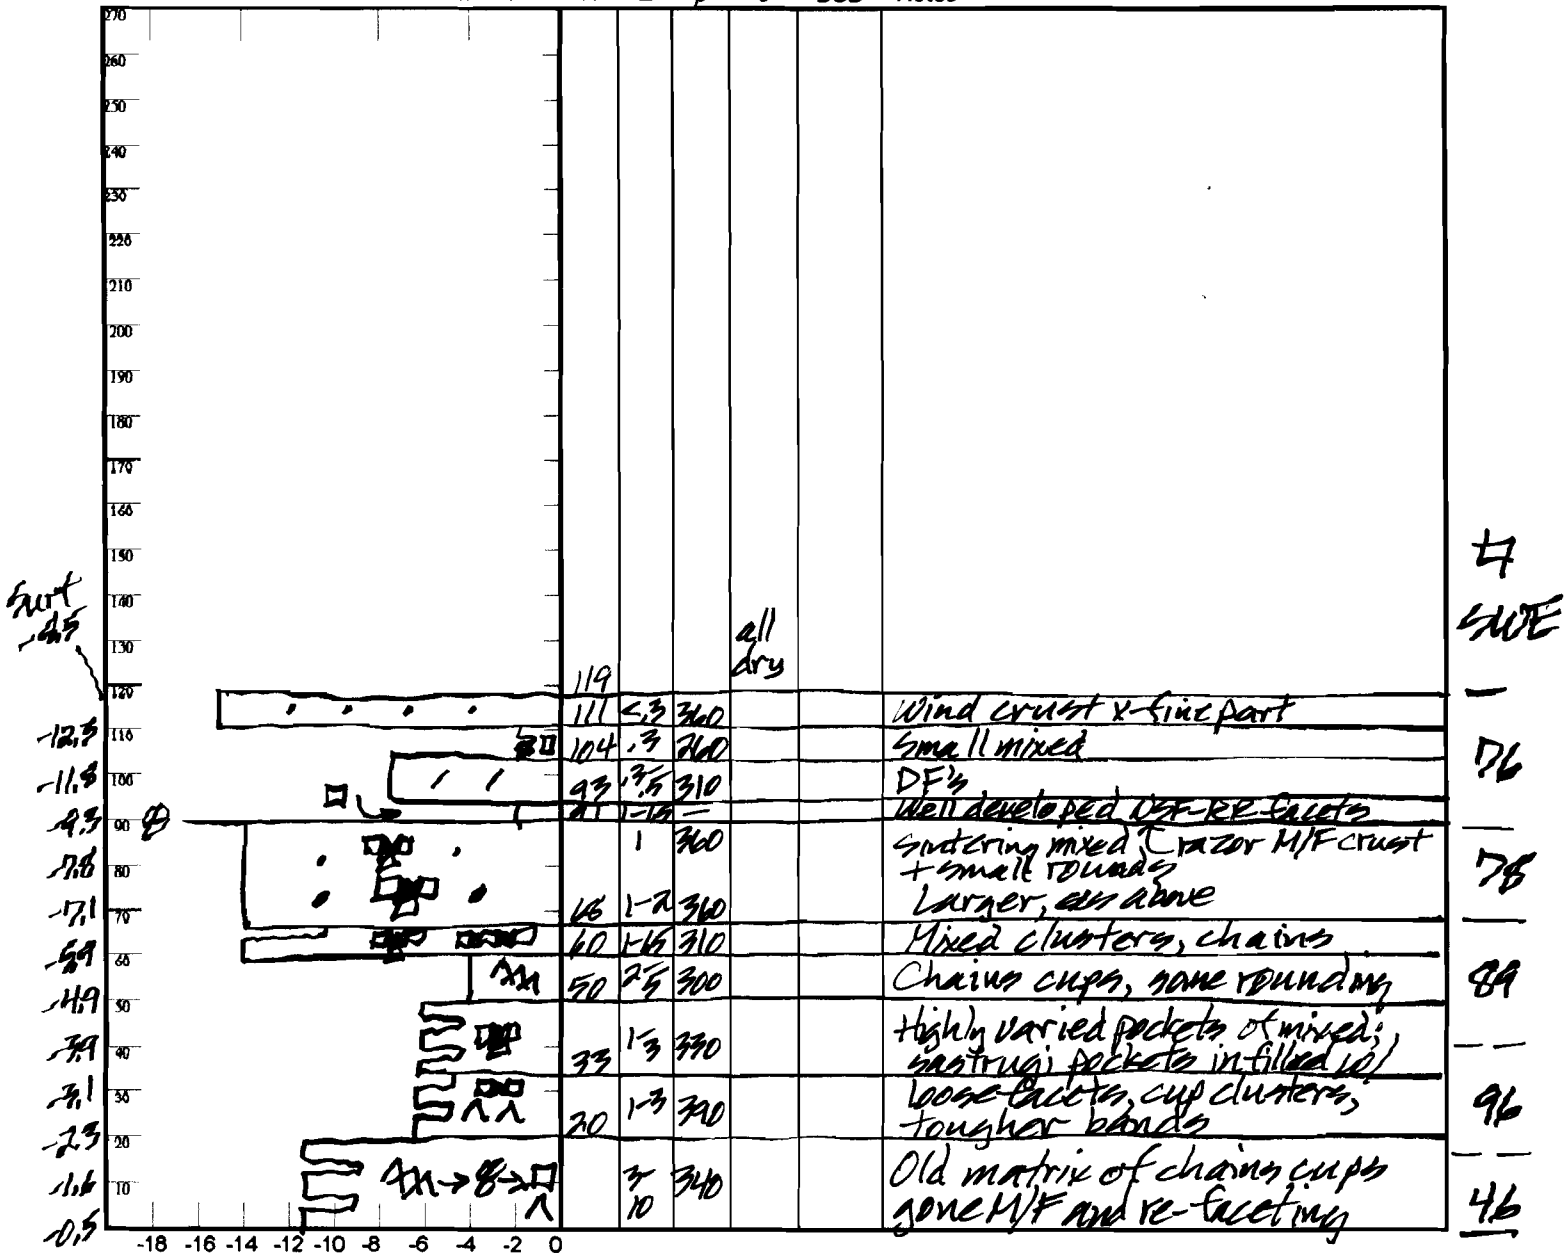 SCD Notes
270
260
250
240
230
220
210
200
190
180
170
160
150
140
130
120
110
100
90
80
70
60
50
40
30
20
10
-18 -16 -14 -12 -10 -8 -6 -4 -2 0
Surf
-12.3
-11.8
-9.3
-7.8
-7.1
-5.9
-4.9
-3.9
-3.1
-2.3
-1.6
-0.5
all
dry
SWE
119
111 <.3 360 Wind crust x-fine part
104 .3 260 Small mixed
93 .3-.5 310 DF's
91 1-1.5 — Well developed NSF-RR facets
1 360 Sintering mixed, razor M/F crust
+ small rounds
68 1-2 360 Larger, as above
60 1-1.5 310 Mixed clusters, chains
50 2-5 300 Chains cups, some rounding
33 1-3 330 Highly varied pockets of mixed;
sastrugi pockets infilled w/
20 1-3 390 loose facets, cup clusters,
tougher bands
3-10 340 Old matrix of chains cups
gone M/F and re-faceting
76
78
89
96
46